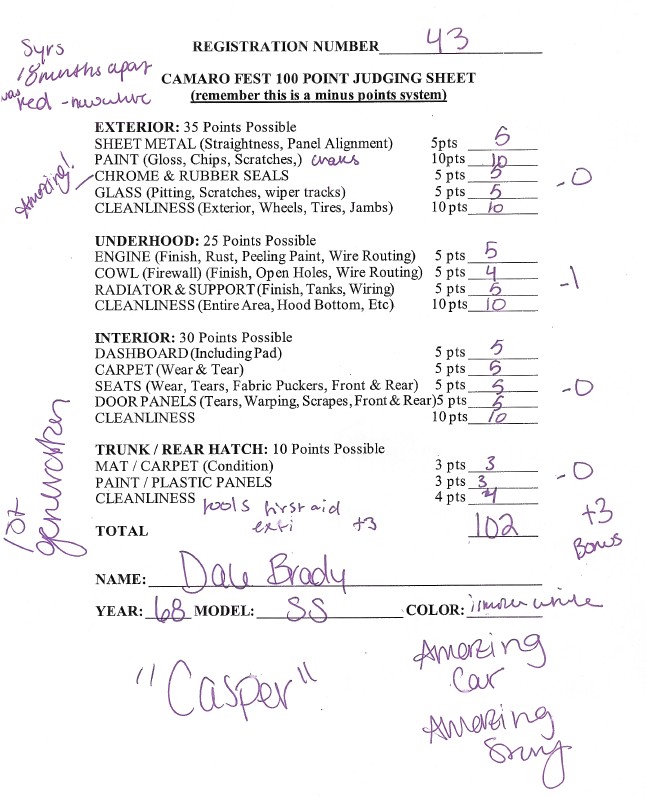 REGISTRATION NUMBER 43
5yrs
18 months apart
was red - now white
CAMARO FEST 100 POINT JUDGING SHEET
(remember this is a minus points system)
EXTERIOR: 35 Points Possible
SHEET METAL (Straightness, Panel Alignment) 5pts 5
PAINT (Gloss, Chips, Scratches,) 10pts 10
Amazing!
CHROME & RUBBER SEALS 5 pts 5 -0
GLASS (Pitting, Scratches, wiper tracks) 5 pts 5
CLEANLINESS (Exterior, Wheels, Tires, Jambs) 10 pts 10
UNDERHOOD: 25 Points Possible
ENGINE (Finish, Rust, Peeling Paint, Wire Routing) 5 pts 5
COWL (Firewall) (Finish, Open Holes, Wire Routing) 5 pts 4 -1
RADIATOR & SUPPORT (Finish, Tanks, Wiring) 5 pts 5
CLEANLINESS (Entire Area, Hood Bottom, Etc) 10 pts 10
INTERIOR: 30 Points Possible
DASHBOARD (Including Pad) 5 pts 5
CARPET (Wear & Tear) 5 pts 5
SEATS (Wear, Tears, Fabric Puckers, Front & Rear) 5 pts 5 -0
DOOR PANELS (Tears, Warping, Scrapes, Front & Rear) 5 pts 5
CLEANLINESS 10 pts 10
1st generation
TRUNK / REAR HATCH: 10 Points Possible
MAT / CARPET (Condition) 3 pts 3 -0
PAINT / PLASTIC PANELS 3 pts 3
CLEANLINESS 4 pts 4
tools first aid
exti +3
TOTAL 102 +3
Bonus
NAME: Dale Brady
YEAR: 68 MODEL: SS COLOR: white
"Casper"
Amazing
Car
Amazing
Story